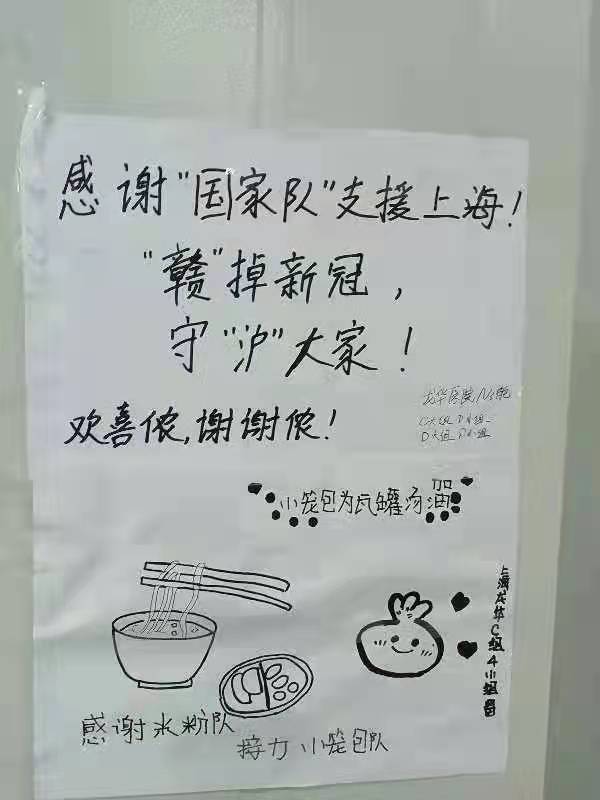 感谢"国家队"支援上海！
"赣"掉新冠，
守"沪"大家！
欢喜侬,谢谢侬！
龙华医院
C大组
D大组
小笼包为瓦罐汤加油
上海龙华C组4小组
感谢米粉队
接力小笼包队